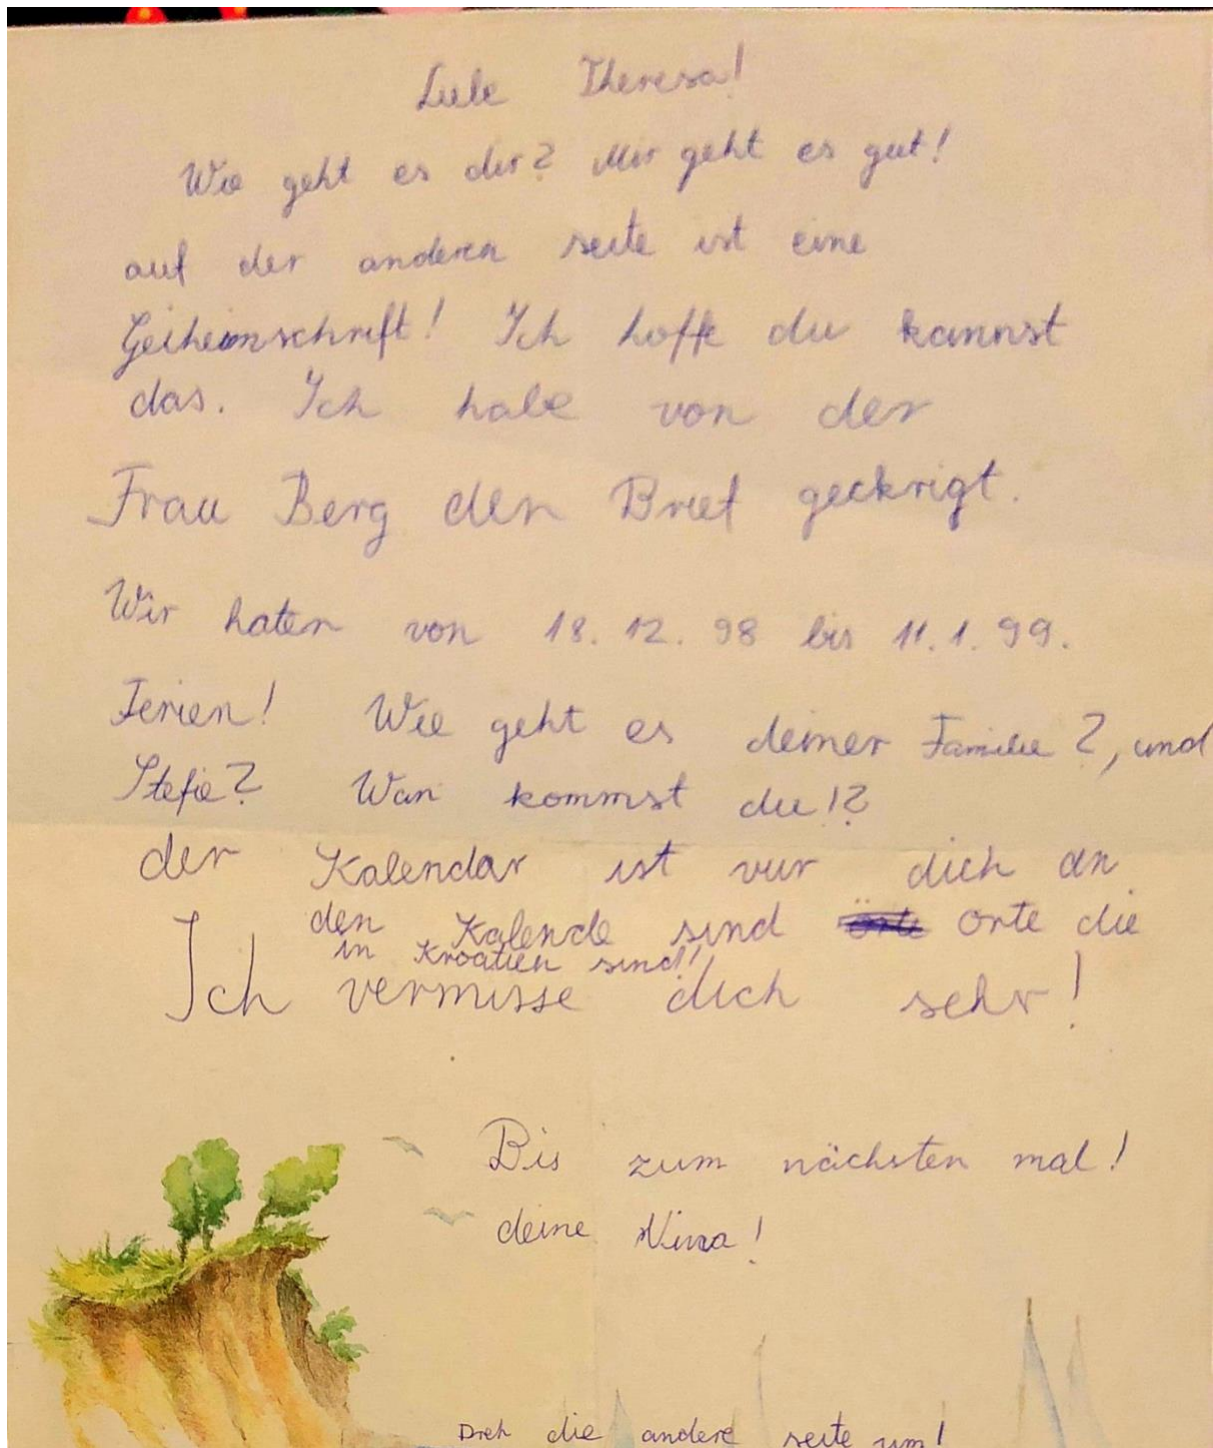 Liebe Theresa!
Wie geht es dir? Mir geht es gut!
auf der anderen seite ist eine
Geiheimschrift! Ich hoffe du kannst
das. Ich habe von der
Frau Berg den Brief geckrigt.
Wir haten von 18. 12. 98 bis 11. 1. 99.
Ferien! Wie geht es deiner Familie?, und
Stefie? Wan kommst du!?
der Kalendar ist vur dich an
den Kalende sind orte die
in Kroatien sind!!
Ich vermisse dich sehr!
Bis zum nächsten mal!
deine Nina!
Dreh die andere seite um!